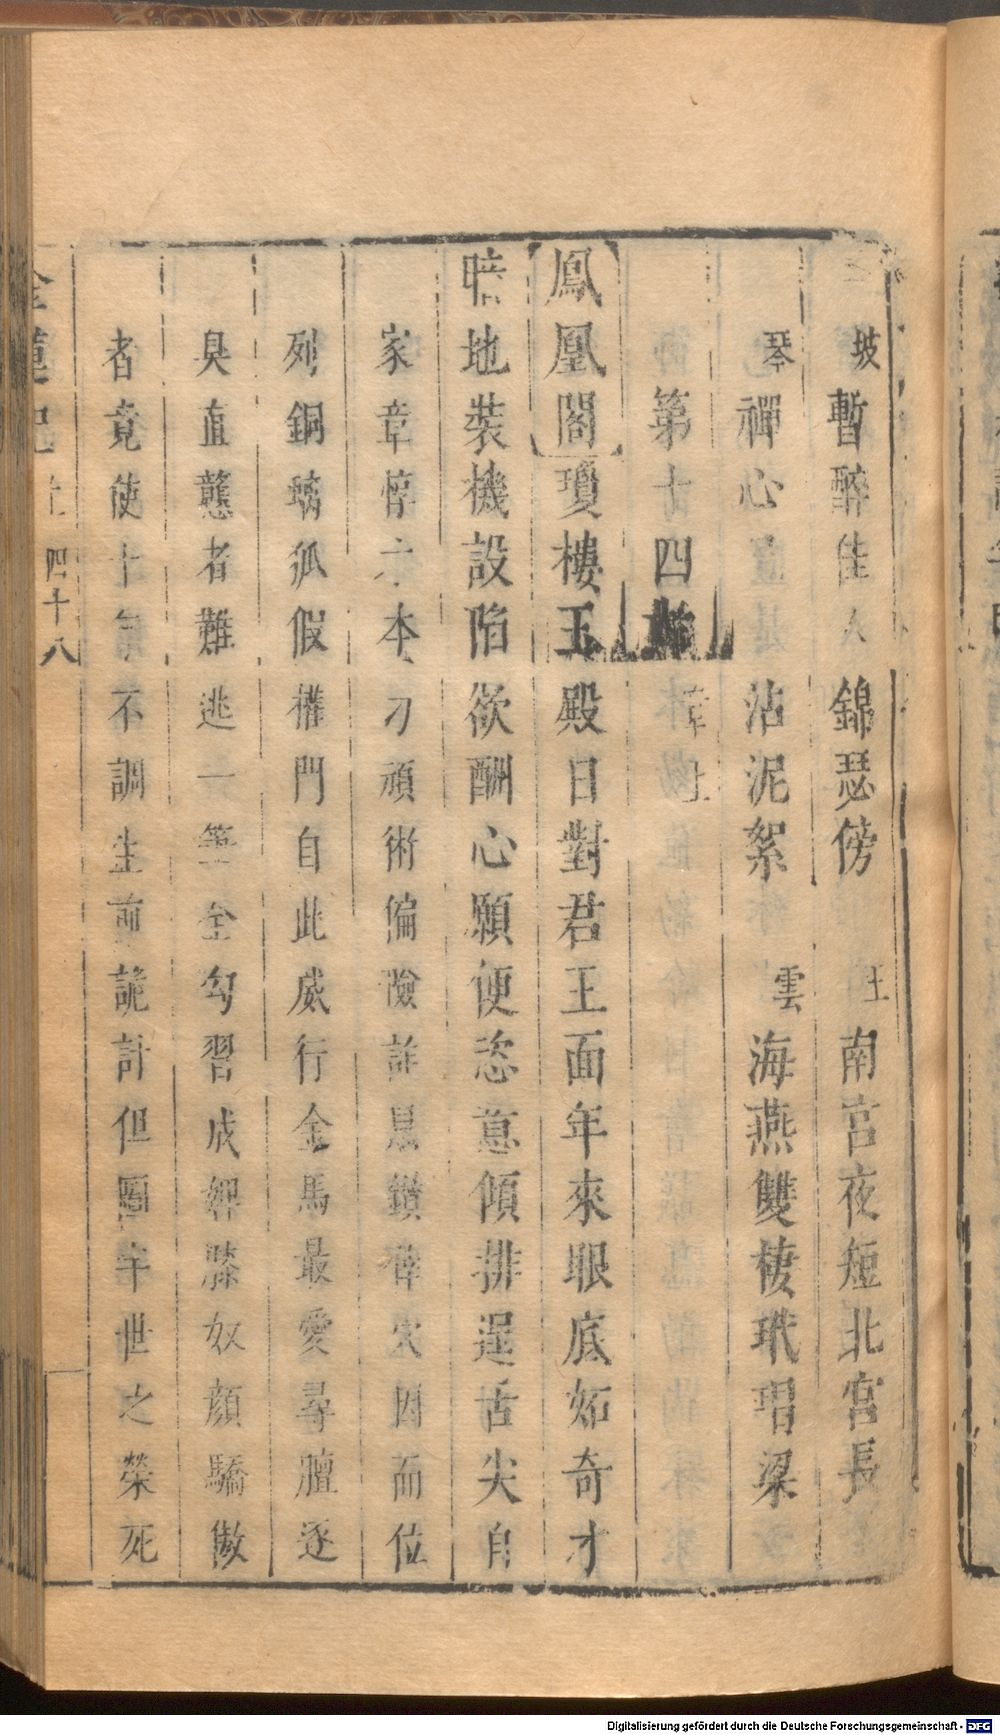 坡 暫醉佳人 錦瑟傍 王 南宮夜短北宮長
琴 禪心 沾泥絮 雲 海燕雙棲玳瑁梁
第十四齣
鳳凰閣 瓊樓玉殿日對君王面年來眼底妬奇才
暗地裝機設陷欲酬心願便恣意傾排逞舌尖自
家章惇 本刁頑術偏險詐 鑽 穴因而位
列銅 狐假權門自此威行金馬最愛尋膻逐
臭直戇者難逃一筆全勾習成婢膝奴顏驕傲
者竟使十 不調生前詭計但圖 世之榮死
四十八
Digitalisierung gefördert durch die Deutsche Forschungsgemeinschaft - DFG